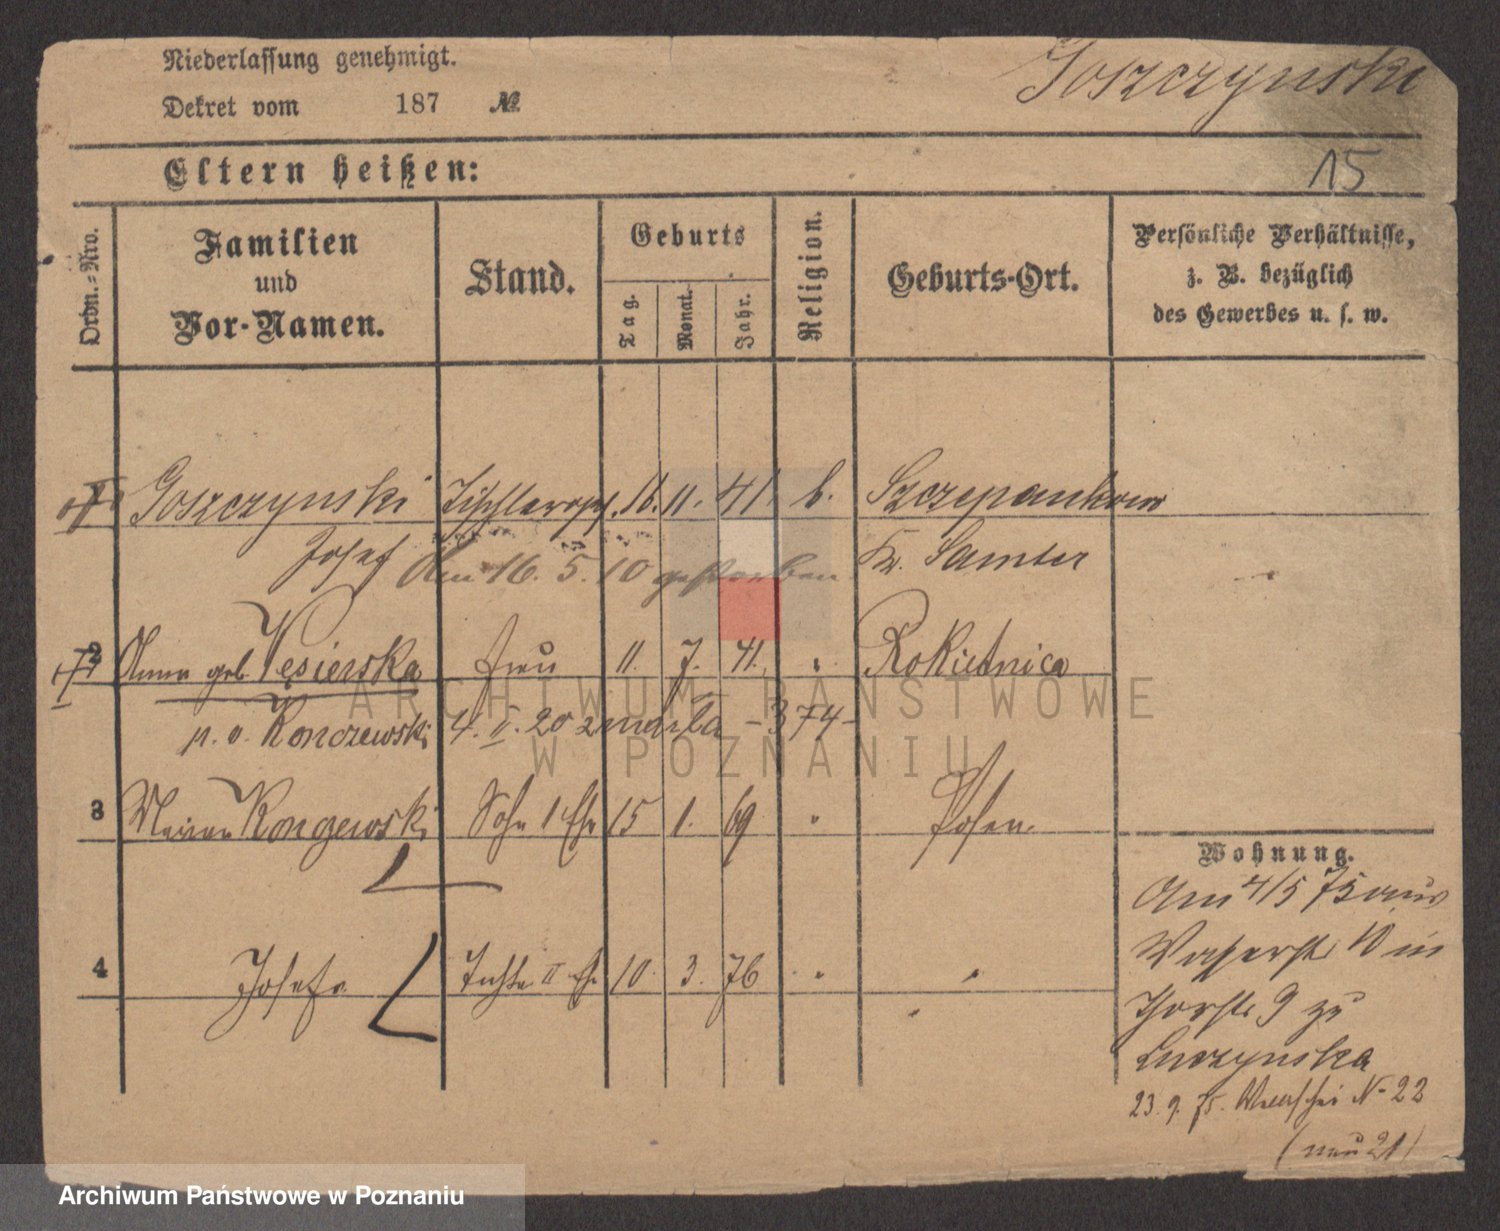 Niederlassung genehmigt.
Goszczynski
Dekret vom 187 №
Eltern heißen:
15
Ordn.-Nro.
Familien
und
Vor-Namen.
Stand.
Geburts
Tag.
Monat.
Jahr.
Religion.
Geburts-Ort.
Persönliche Verhältnisse,
z. B. bezüglich
des Gewerbes u. s. w.
1 Goszczynski 16. 11. 41. k. Szczepankowo
Josef Am 16. 5. 10 gestorben Kr. Samter
2 Anna geb. Wesierska Frau 11. 7. 41. " Rokietnica
p. v. Konczewski 4. II. 20 zmarła - 374 -
3 Konczewski Sohn 1 Ehe 15 1. 69 " Posen
4 Josefa II Ehe 10. 3. 76 " "
Wohnung.
Am 4/5 75 aus
10 in
9 zu
Luczynska
23. 9. 75. № 22
(neu 21)
ARCHIWUM PAŃSTWOWE
W POZNANIU
Archiwum Państwowe w Poznaniu